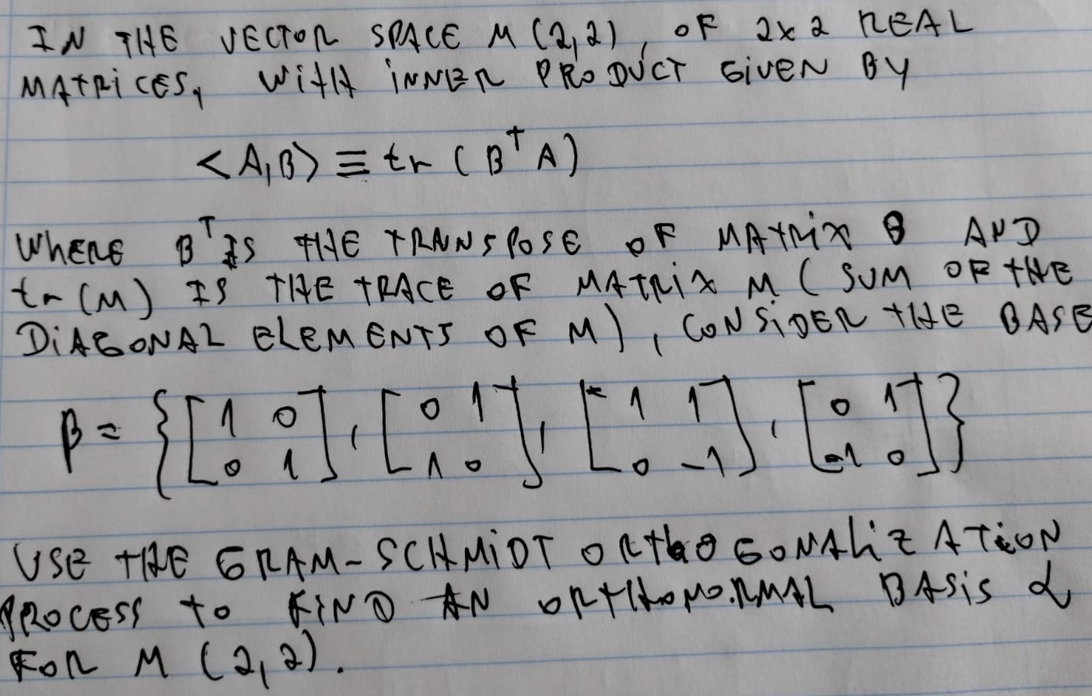 IN THE VECTOR SPACE M(2,2), OF 2x2 REAL
MATRICES, WITH INNER PRODUCT GIVEN BY
<A,B> ≡ tr (B^T A)
WHERE B^T IS THE TRANSPOSE OF MATRIX B AND
tr(M) IS THE TRACE OF MATRIX M (SUM OF THE
DIAGONAL ELEMENTS OF M), CONSIDER THE BASE
β = {[1 0; 0 1], [0 1; 1 0], [1 1; 0 -1], [0 1; -1 0]}
USE THE GRAM-SCHMIDT ORTHOGONALIZATION
PROCESS TO FIND AN ORTHONORMAL BASIS α
FOR M (2,2).